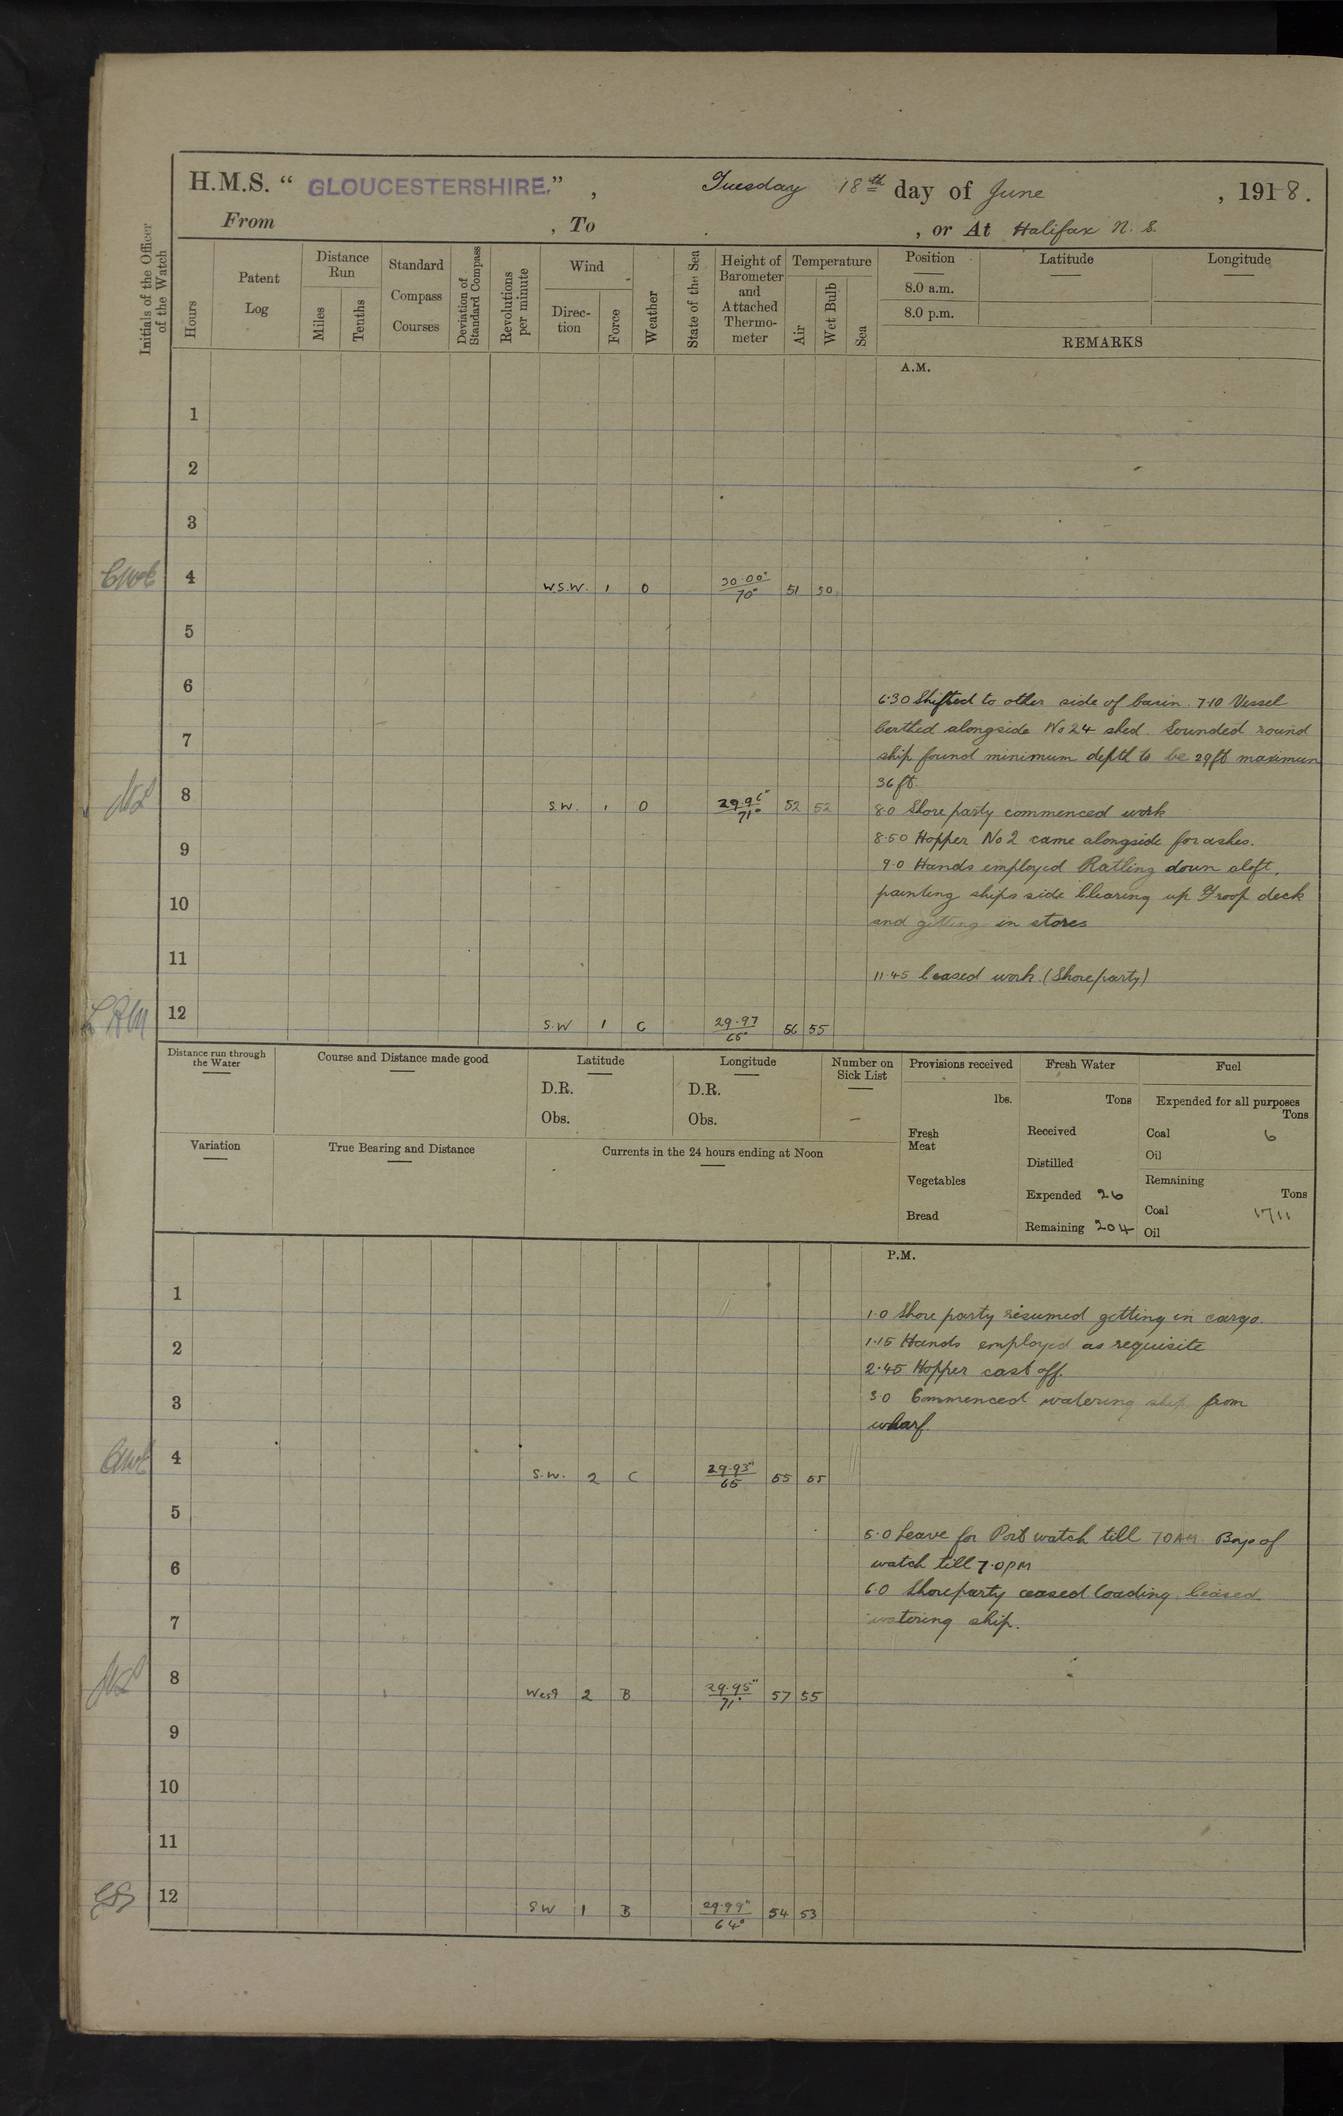 H.M.S. “ GLOUCESTERSHIRE.” , Tuesday 18th day of June , 1918.
From , To , or At Halifax N. S.
Initials of the Officer of the Watch
Hours
Patent Log
Distance Run
Miles
Tenths
Standard Compass Courses
Deviation of Standard Compass
Revolutions per minute
Wind
Direction
Force
Weather
State of the Sea
Height of Barometer and Attached Thermometer
Temperature
Air
Wet Bulb
Sea
Position Latitude Longitude
8.0 a.m.
8.0 p.m.
REMARKS
A.M.
1
2
3
4 W.S.W. 1 O 30.00" 70° 51 50
5
6
6.30 Shifted to other side of basin. 7.10 Vessel
7 berthed alongside No 24 shed. Sounded round
ship found minimum depth to be 29ft maximum
36 ft.
8 S.W. 1 O 29.96" 71° 52 52 8.0 Shore party commenced work
8.50 Hopper No 2 came alongside for ashes.
9 9.0 Hands employed Ratling down aloft,
10 painting ships side Clearing up Troop deck
and getting in stores
11 11.45 Ceased work (Shore party)
12 S.W 1 C 29.97 65° 56 55
Distance run through the Water
Course and Distance made good
Latitude
D.R.
Obs.
Longitude
D.R.
Obs.
Number on Sick List
-
Provisions received
lbs.
Fresh Meat
Vegetables
Bread
Fresh Water
Tons
Received
Distilled
Expended 26
Remaining 204
Fuel
Expended for all purposes
Tons
Coal 6
Oil
Remaining
Tons
Coal 1711
Oil
Variation
True Bearing and Distance
Currents in the 24 hours ending at Noon
P.M.
1
1.0 Shore party resumed getting in cargo.
2 1.15 Hands employed as requisite
2.45 Hopper cast off.
3 3.0 Commenced watering ship from
wharf.
4 S.W. 2 C 29.93" 65 55 55
5
5.0 Leave for Port watch till 7.0 AM. Boys of
6 watch till 7.0 PM
6.0 Shore party ceased loading. Ceased
7 watering ship.
8 West 2 B 29.95" 71° 57 55
9
10
11
12 SW 1 B 29.99" 64° 54 53